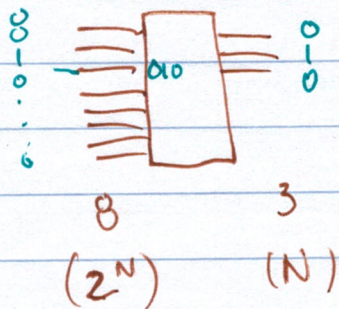 0
0
1
0
.
.
0
010
0
1
0
8 3
(2^N) (N)